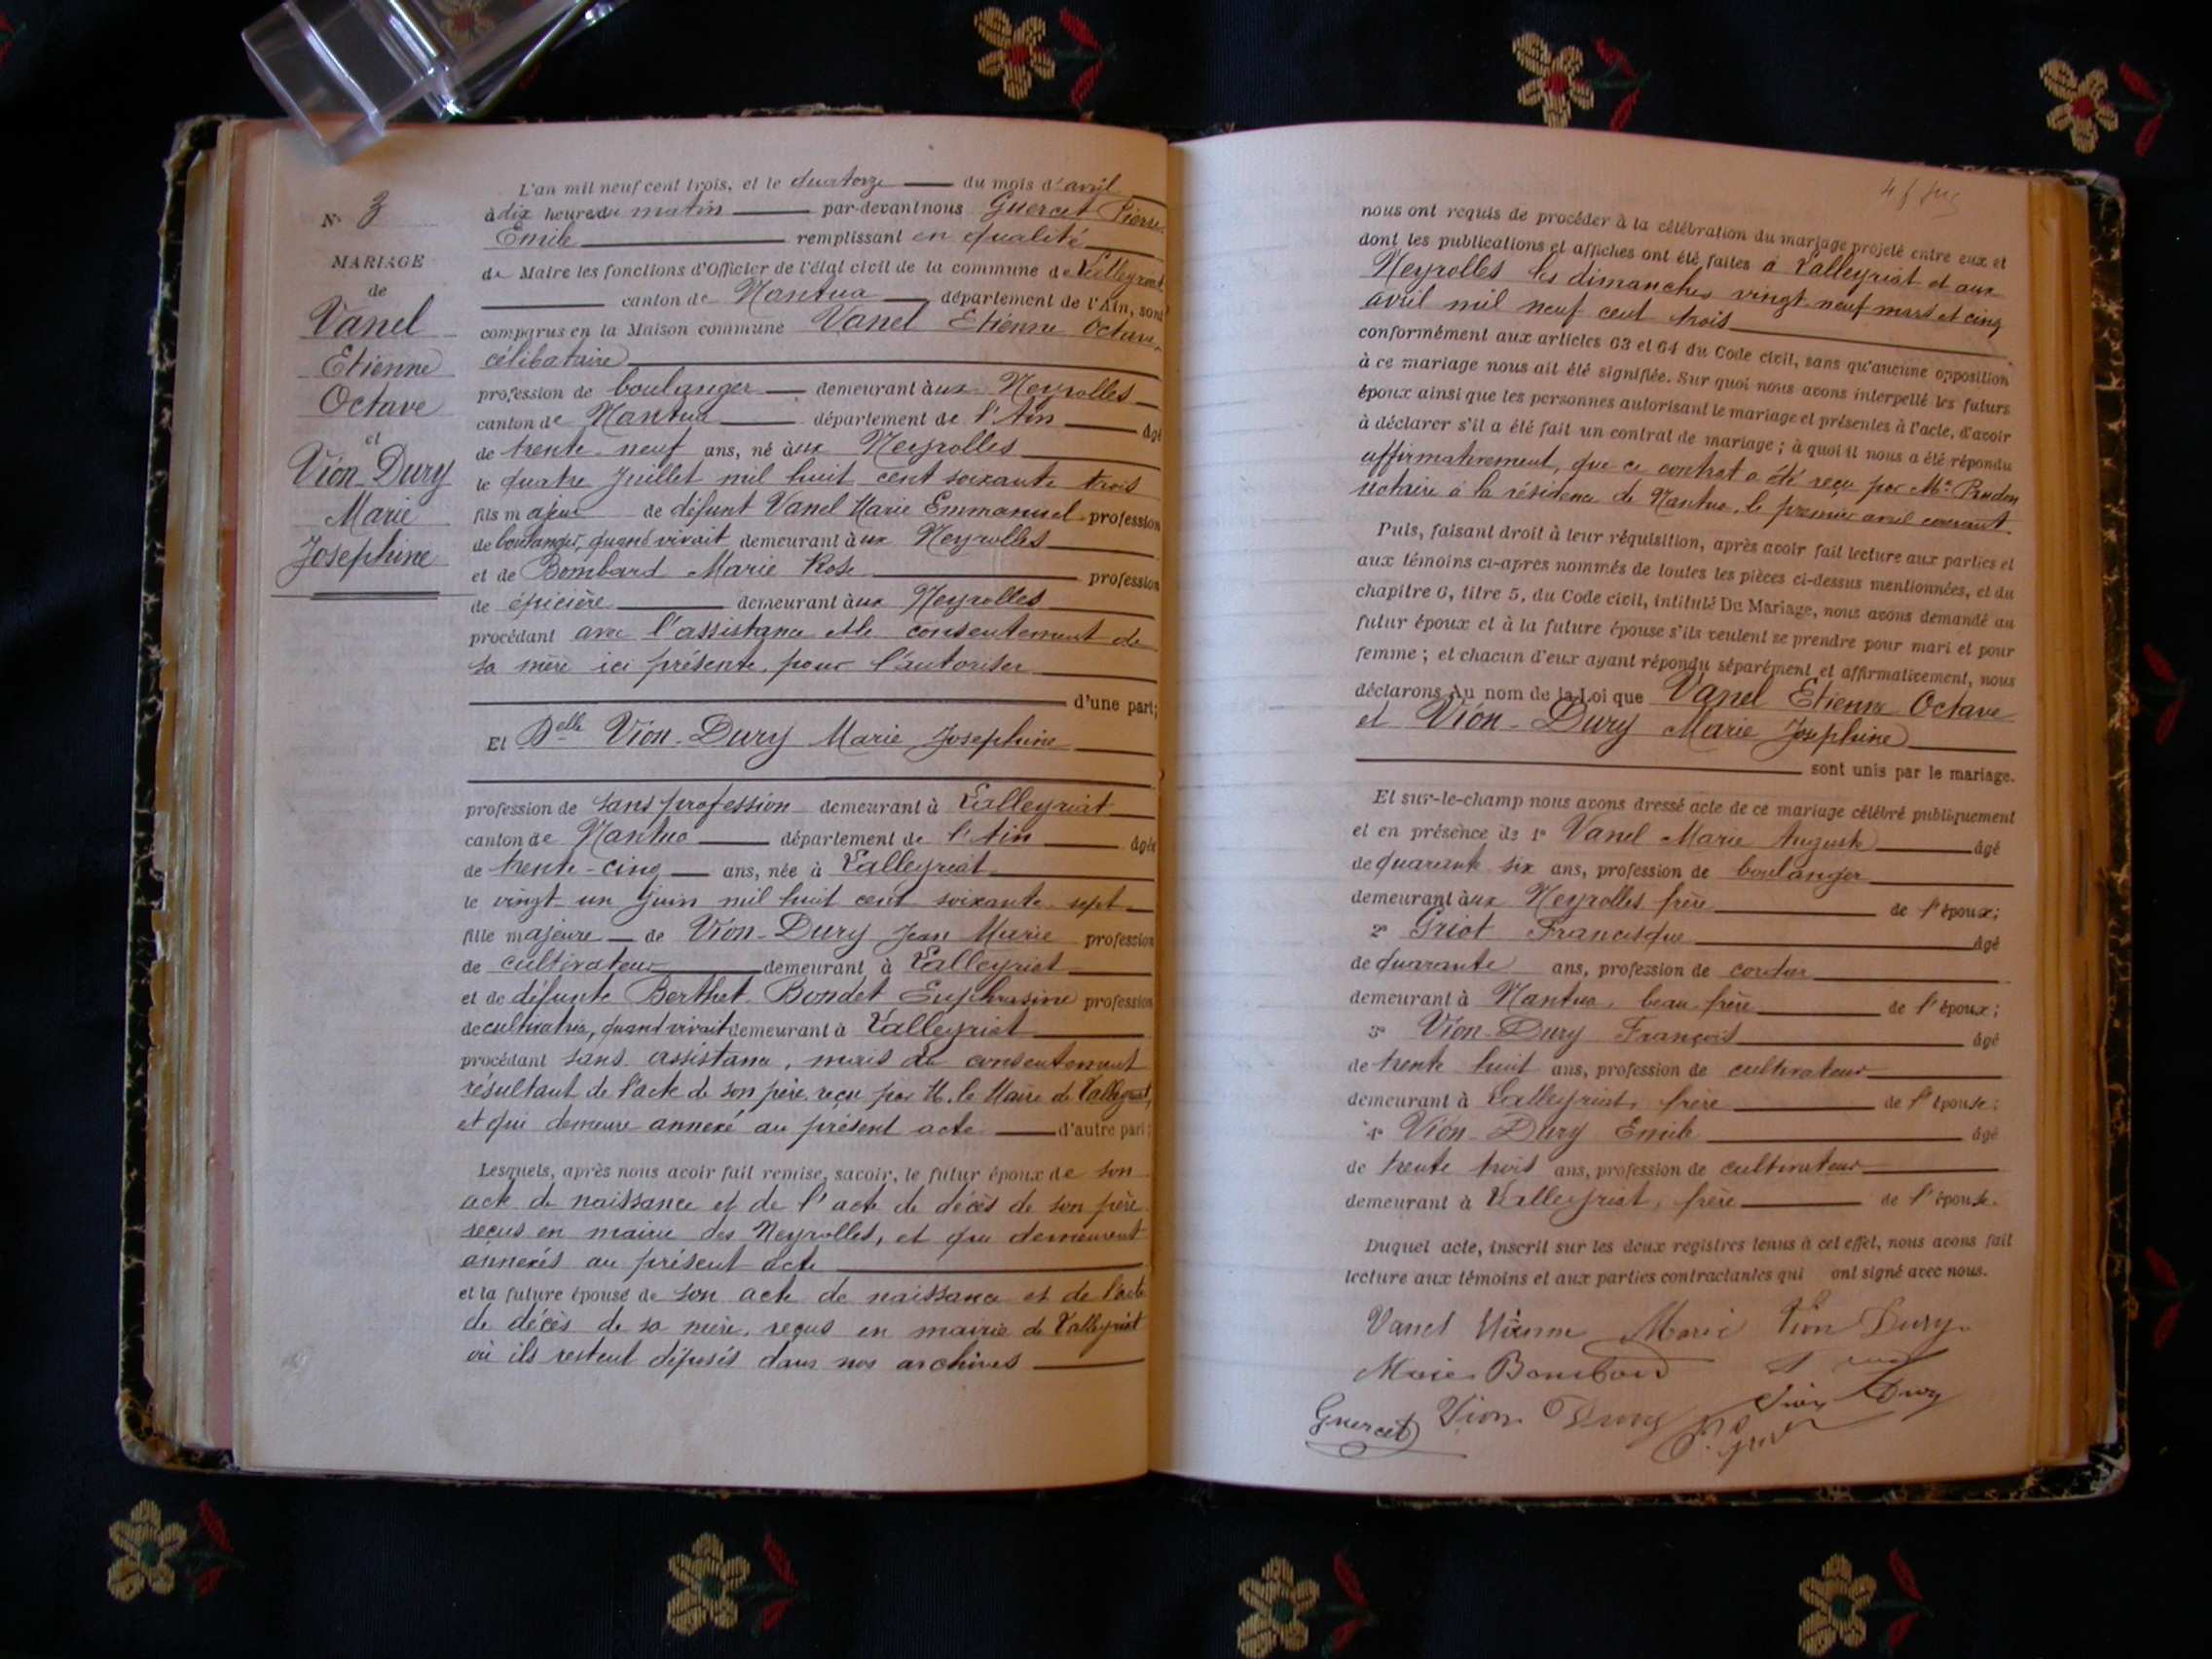 N° 3
MARIAGE
de
Vanel
Etienne
Octave
et
Vion-Dury
Marie
Josephine
L'an mil neuf cent trois, et le quatorze du mois d'avril
à dix heures du matin par-devant nous Guercet Pierre
Emile remplissant en qualité
de Maire les fonctions d'Officier de l'état civil de la commune de Lalleyriat
canton de Nantua département de l'Ain, sont
comparus en la Maison commune Vanel Etienne Octave
célibataire
profession de boulanger demeurant aux Neyrolles
canton de Nantua département de l'Ain âgé
de trente-neuf ans, né aux Neyrolles
le quatre Juillet mil huit cent soixante trois
fils majeur de défunt Vanel Marie Emmanuel profession
de boulanger, quand vivait demeurant aux Neyrolles
et de Bombard Marie Rose profession
de épicière demeurant aux Neyrolles
procédant avec l'assistance et le consentement de
sa mère ici présente, pour l'autoriser
d'une part;
Et Delle Vion-Dury Marie Josephine
profession de sans profession demeurant à Lalleyriat
canton de Nantua département de l'Ain âgée
de trente-cinq ans, née à Lalleyriat
le vingt un Juin mil huit cent soixante-sept
fille majeure de Vion-Dury Jean Marie profession
de cultivateur demeurant à Lalleyriat
et de défunte Berthet-Bondet Euphrasine profession
de cultivatrice, quand vivait demeurant à Lalleyriat
procédant sans assistance, mais du consentement
résultant de l'acte de son père, reçu par M. le Maire de Lalleyriat,
et qui demeure annexé au présent acte d'autre part;
Lesquels, après nous avoir fait remise, savoir, le futur époux de son
acte de naissance et de l'acte de décès de son père
reçus en mairie des Neyrolles, et qui demeurent
annexés au présent acte
et la future épouse de son acte de naissance et de l'acte
de décès de sa mère, reçus en mairie de Lalleyriat
où ils restent déposés dans nos archives
nous ont requis de procéder à la célébration du mariage projeté entre eux et
dont les publications et affiches ont été faites à Lalleyriat et aux
Neyrolles les dimanches vingt-neuf mars et cinq
avril mil neuf cent trois
conformément aux articles 63 et 64 du Code civil, sans qu'aucune opposition
à ce mariage nous ait été signifiée. Sur quoi nous avons interpellé les futurs
époux ainsi que les personnes autorisant le mariage et présentes à l'acte, d'avoir
à déclarer s'il a été fait un contrat de mariage; à quoi il nous a été répondu
affirmativement, que ce contrat a été reçu par Me
notaire à la résidence de Nantua, le premier avril courant
Puis, faisant droit à leur réquisition, après avoir fait lecture aux parties et
aux témoins ci-après nommés de toutes les pièces ci-dessus mentionnées, et du
chapitre 6, titre 5, du Code civil, intitulé Du Mariage, nous avons demandé au
futur époux et à la future épouse s'ils veulent se prendre pour mari et pour
femme; et chacun d'eux ayant répondu séparément et affirmativement, nous
déclarons Au nom de la Loi que Vanel Etienne Octave
et Vion-Dury Marie Josephine
sont unis par le mariage.
Et sur-le-champ nous avons dressé acte de ce mariage célébré publiquement
et en présence de 1° Vanel Marie Auguste âgé
de quarante six ans, profession de boulanger
demeurant aux Neyrolles frère de l'époux;
2° Griot Francisque âgé
de quarante ans, profession de
demeurant à Nantua, beau-frère de l'époux;
3° Vion-Dury François âgé
de trente huit ans, profession de cultivateur
demeurant à Lalleyriat, frère de l'épouse;
4° Vion-Dury Emile âgé
de trente trois ans, profession de cultivateur
demeurant à Lalleyriat, frère de l'épouse.
Duquel acte, inscrit sur les deux registres tenus à cet effet, nous avons fait
lecture aux témoins et aux parties contractantes qui ont signé avec nous.
Vanel Etienne Marie Vion Dury
Marie Bombard
Guercet Vion Dury Vion Dury